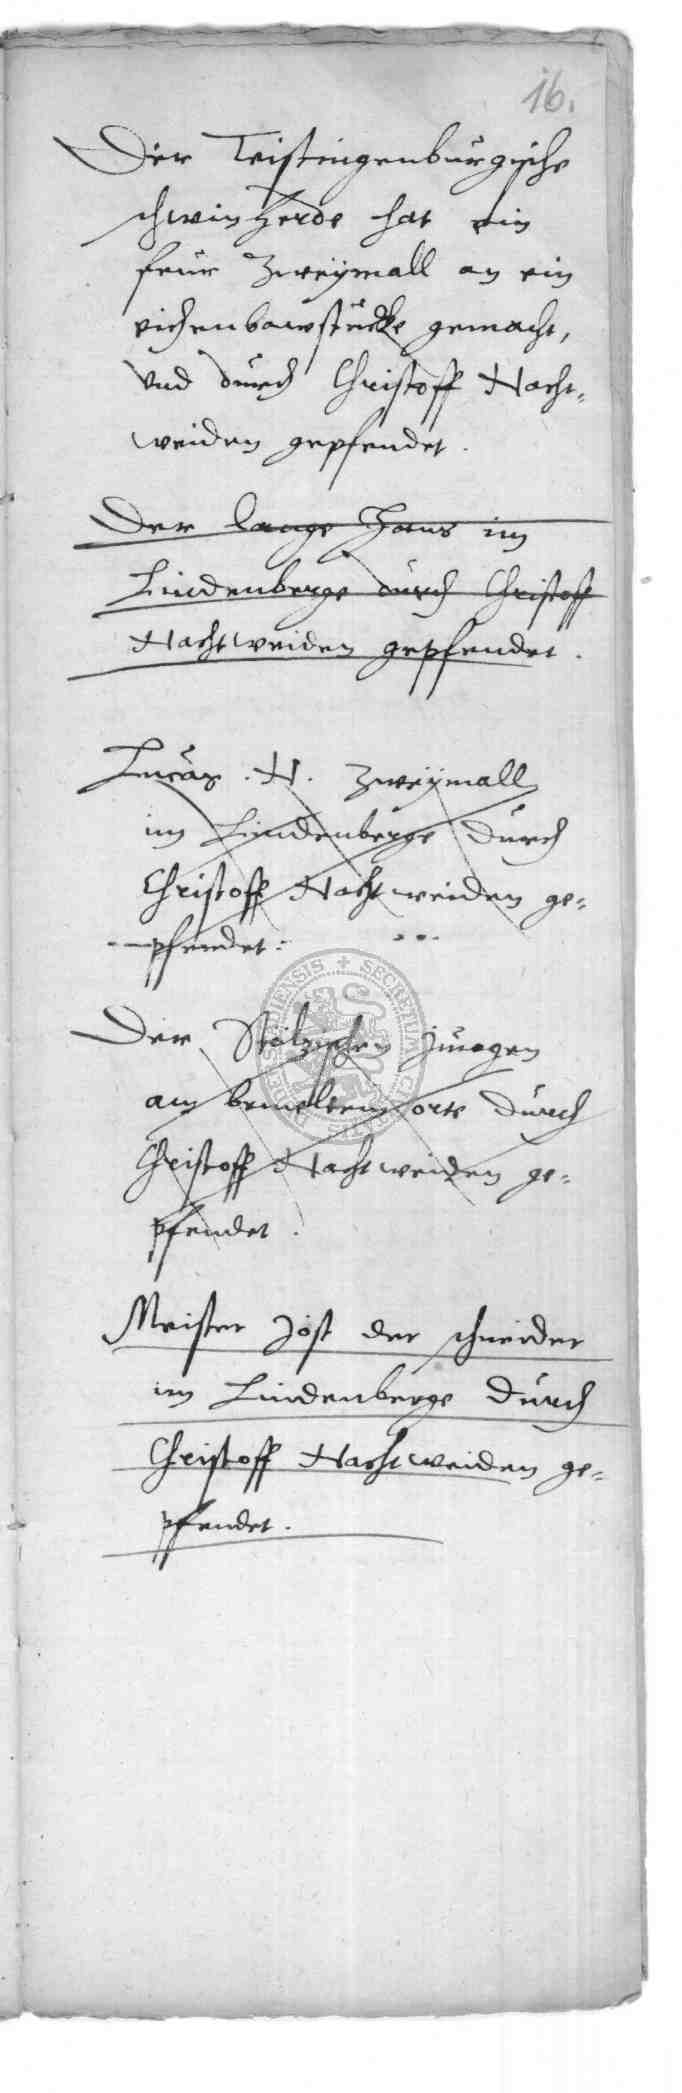 16.
Der Teistingenburgische
schwin Herde hat ein
feur Zweymall an ein
eichenbawstucke gemacht,
Vnd durch Christoff Nacht-
weiden gepfendet.
Der lange Hans im
Lindenberge durch Christoff
Nachtweiden gepfendet.
Lucas. N. Zweymall
im Lindenberge durch
Christoff Nachtweiden ge-
pfendet.
Der jungen
am bemeltem orte durch
Christoff Nachtweiden ge-
pfendet.
Meister Jost der schneider
im Lindenberge durch
Christoff Nachtweiden ge-
pfendet.
SECRETUM